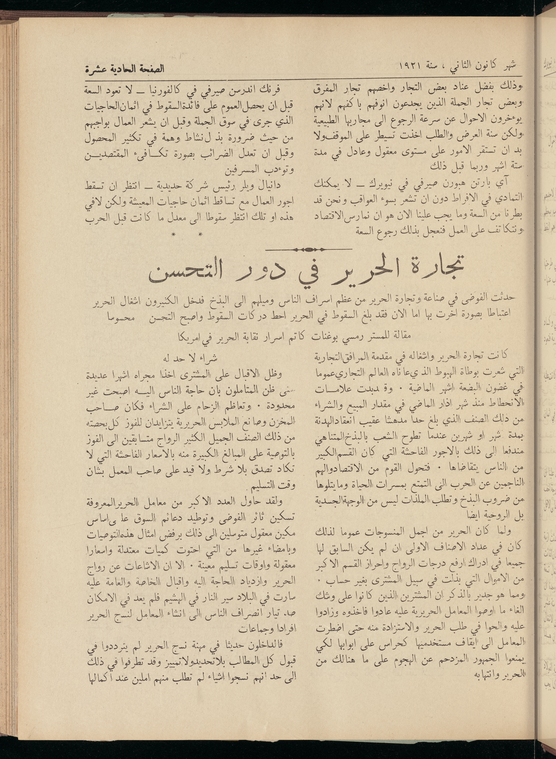 شهر كانون الثاني ، سنة ١٩٢١
الصفحة الحادية عشرة
وذلك بفضل عناد بعض التجار واخصهم تجار المفرق
وبعض تجار الجملة الذين يجدعون انوفهم باكفهم لانهم
يوخرون الاحوال عن سرعة الرجوع الى مجاريها الطبيعية
ولكن سنة العرض والطلب اخذت تسيطر على الموقف ولا
بد ان تستقر الامور على مستوى معقول وعادل في مدة
ستة اشهر وربما قبل ذلك
آي بارتن هبورن صيرفي في نيويرك — لا يمكنك
التمادي في الافراط دون ان تشعر بسوء العواقب ونحن قد
بطرنا من السعة وما يجب علينا الان هو ان نمارس الاقتصاد
ونتكاتف على العمل فنعجل بذلك رجوع السعة
فرنك اندرسن صيرفي في كالفورنيا — لا تعود السعة
قبل ان يحصل العموم على فائدة السقوط في اثمان الحاجيات
الذي جرى في سوق الجملة وقبل ان يشعر العمال بواجبهم
من حيث ضرورة بذل نشاط وهمة في تكثير المحصول
وقبل ان تعدل الضرائب بصورة تكافيء المقتصديـن
وتودب المسرفين
دانيال ويلر رئيس شركة حديدية — انتظر ان تسقط
اجور العمال مع تساقط اثمان حاجيات المعيشة ولكن لا في
هذه او تلك انتظر سقوطا الى معدل ما كانت قبل الحرب
* *
تجارة الحرير في دور التحسن
حدثت الفوضى في صناعة وتجارة الحرير من عظم اسراف الناس وميلهم الى البذخ فدخل الكبيرون اشغال الحرير
اعتباطا بصورة اخرت بها اما الان فقد بلغ السقوط في الحرير احط دركات السقوط واصبح التحسن محسوسا
مقالة للمستر رمسي بوغنات كاتم اسرار نقابة الحرير في امريكا
كانت تجارة الحرير واشغاله في مقدمة المرافق التجارية
التي شعرت بوطاة الهبوط الذي عاناه العالم التجاري عموما
في غضون البضعة اشهر الماضية . وقد بدت علامـات
الانحطاط منذ شهر اذار الماضي في مقدار المبيع والشراء
من ذلك الصنف الذي بلغ حدا مدهشا عقيب انعقاد الهدنة
بمدة شهر او شهرين عندما تطوح الشعب بالبذخ المتناهي
مندفعا الى ذلك بالاجور الفاحشة التي كان القسم الكبير
من الناس يتقاضاها . فتحول القوم من الاقتصاد والهم
الناجمين عن الحرب الى التمتع بمسرات الحياة وما يتلوها
من ضروب البذخ وتطلب الملذات ليس من الوجهة الجسدية
بل الروحية ايضا
ولما كان الحرير من اجمل المنسوجات عموما لذلك
كان في عداد الاصناف الاولى ان لم يكن السابق لها
جميعا في ادراك ارفع درجات الرواج واحراز القسم الاكبر
من الاموال التي بذلت في سبيل المشترى بغير حساب .
ومما هو جدير بالذكر ان المشترين الذين كانوا على وشك
الغاء ما اوصوا المعامل الحريرية عليه عادوا فاخذوه وزادوا
عليه والحوا في طلب الحرير والاستزادة منه حتى اضطرت
المعامل الى ايقاف مستخدميها كحراس على ابوابها لكي
يمنعوا الجمهور المزدحم عن الهجوم على ما هنالك من
الحرير وانتهابه
شراء لا حد له
وظل الاقبال على المشترى اخذا مجراه اشهرا عديدة
حتى ظن المتاملون بان حاجة الناس اليـه اصبحت غير
محدودة . وتعاظم الزحام على الشراء فكان صاحب
المخزن وصانع الملابس الحريرية يتزايدان للفوز كل بحصته
من ذلك الصنف الجميل الكثير الرواج متسابقين الى الفوز
بالتوصية على المبالغ الكبيرة منه بالاسعار الفاحشة التي لا
تكاد تصدق بلا شرط ولا قيد على صاحب المعمل بشان
وقت التسليم
ولقد حاول العدد الاكبر من معامل الحرير المعروفة
تسكين ثائر الفوضى وتوطيد دعائم السوق على اساس
مكين معقول متوسلين الى ذلك برفض امثال هذه التوصيات
وبامضاء غيرها من التي احتوت كميات معتدلة واسعارا
معقولة واوقات تسليم معينة . الا ان الاشاعات عن رواج
الحرير وازدياد الحاجة اليه واقبال الخاصة والعامة عليه
سارت في البلاد سير النار في الهشيم فلم يعد في الامكان
صد تيار انصراف الناس الى انشاء المعامل لنسج الحرير
افرادا وجماعات
فالداخلون حديثا في مهنة نسج الحرير لم يترددوا في
قبول كل المطالب بلا تحديد ولا تمييز وقد تطرفوا في ذلك
الى حد انهم نسجوا اشياء لم تطلب منهم املين عند اكمالها